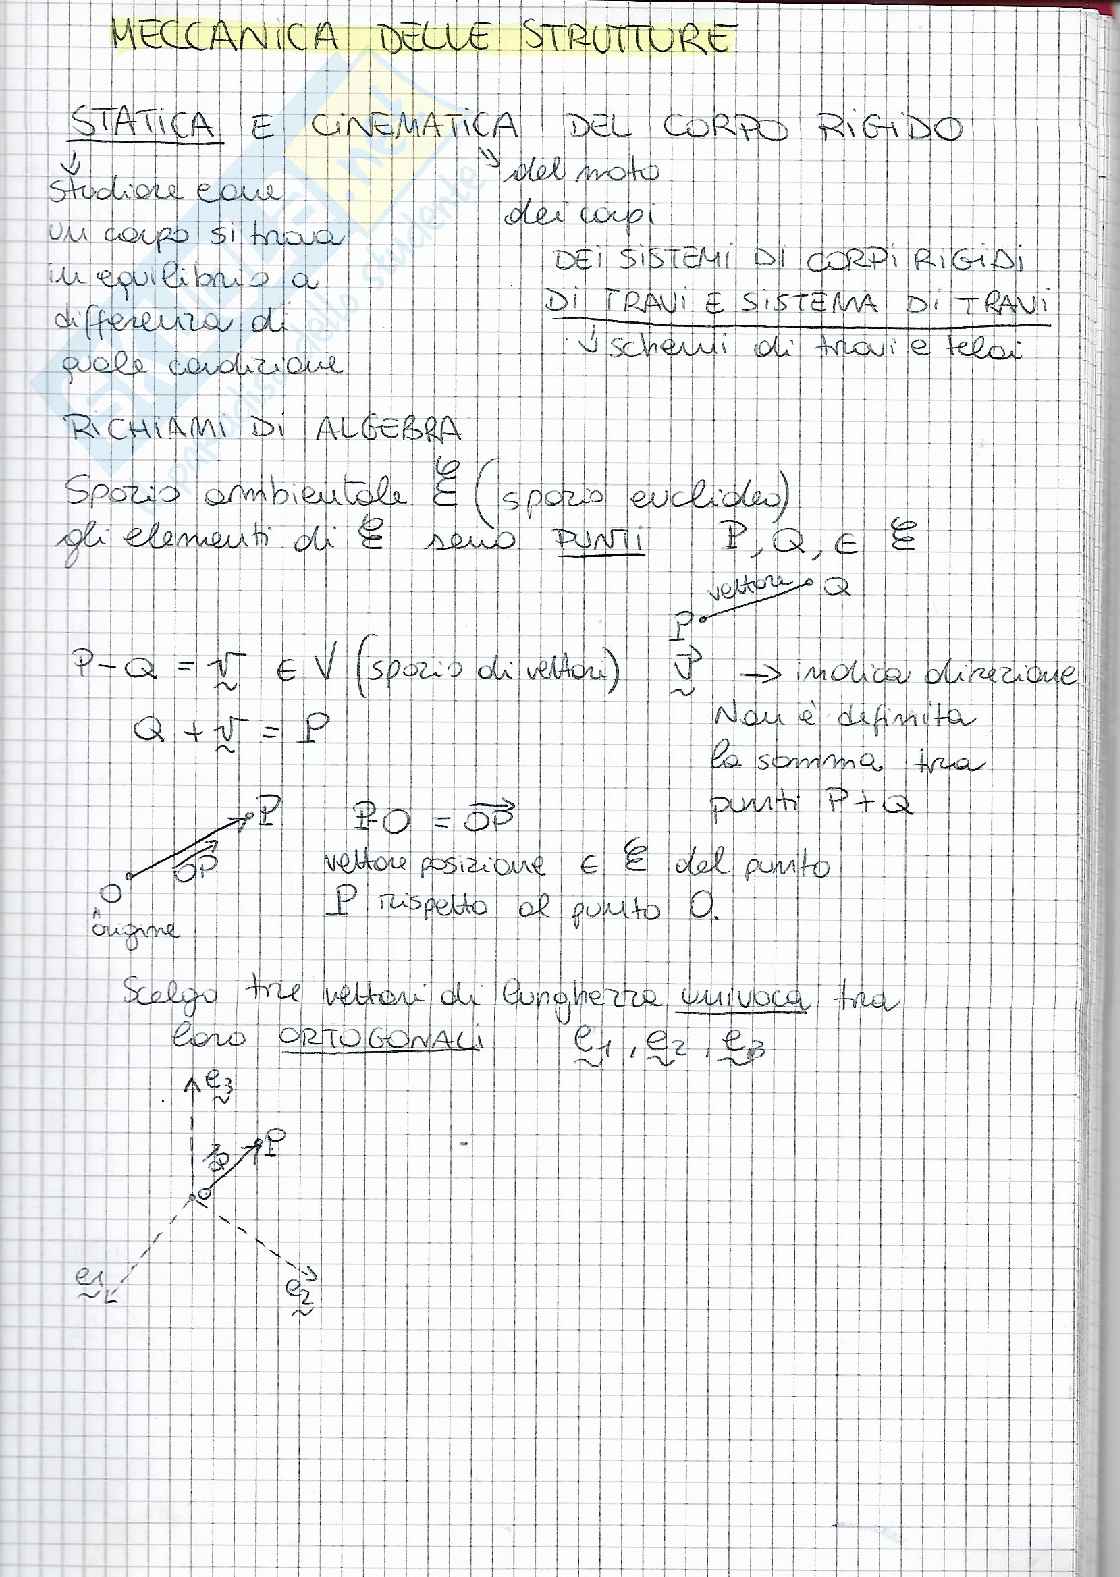 MECCANICA DELLE STRUTTURE
STATICA E CINEMATICA DEL CORPO RIGIDO
↓
studiare come
un corpo si trova
in equilibrio a
differenza di
quale condizione
del moto
dei corpi
DEI SISTEMI DI CORPI RIGIDI
DI TRAVI E SISTEMA DI TRAVI
↓ schemi di travi e telai
RICHIAMI DI ALGEBRA
Spazio ambientale ℰ (spazio euclideo)
gli elementi di ℰ sono PUNTI P, Q, ∈ ℰ
vettore Q
P
P-Q = v ∈ V (spazio di vettori)
v → indica direzione
Q + v = P
Non è definita
la somma tra
punti P+Q
P
OP
O
origine
P-O = OP
vettore posizione ∈ ℰ del punto
P rispetto al punto O.
Scelgo tre vettori di lunghezza univoca tra
loro ORTOGONALI e1, e2, e3
e3
OP P
O
e1
e2